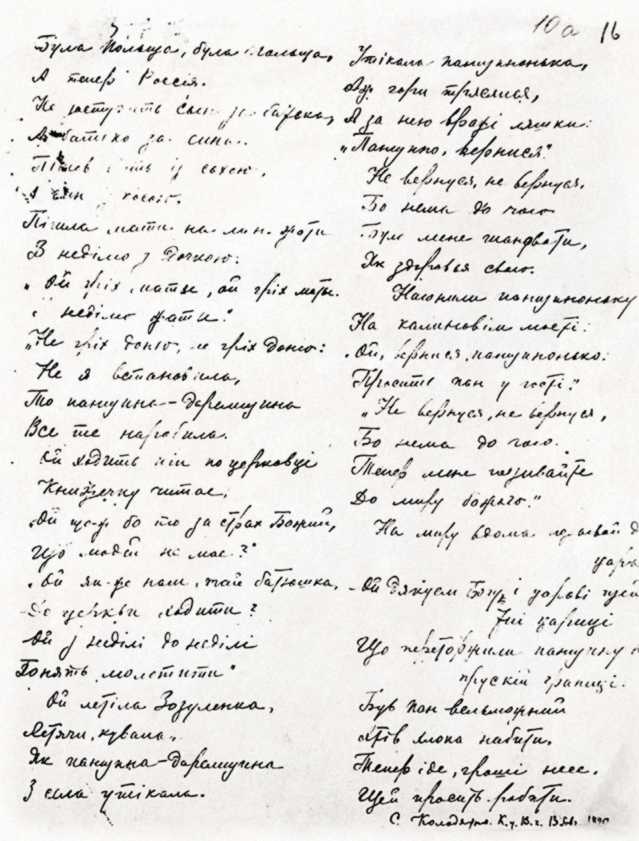 10а 16
Була Польща, була Польща,
А тепер Россія.
Не заступить син за батька,
А батько за сина.
з косою.
Пішла мати на лан жати
В неділю з дочкою:
"Ой гріх, мати, ой гріх, мати,
В неділю жати!"
"Не гріх, доню, не гріх, доню:
Не я встановила,
То панщина-даремщина
Все те наробила.
Ой ходить піп по церковці
Книжечку читає:
"Ой що ж бо то за страх Божий,
Що людей не має?"
"Ой як же нам, пан батюшка,
До церкви ходити?
Ой з неділі до неділі
Гонять молотити"
Ой летіла зозуленка,
Летячи, кувала,
Як панщина-даремщина
З села утікала.
Утікала панщинонька,
Аж гори трялися,
А за нею вражі ляшки:
"Панщино, вернися!"
Не вернуся, не вернуся,
Бо нема до чого
Було мене шанувати,
Як здоровья свого.
Нагонили панщиноньку
На калиновім мості:
"Ой, вернися, панщинонько:
Просить пан у гості."
"Не вернуся, не вернуся,
Бо нема до чого.
Тепер мене
До миру божого."
На миру
Ой дякуем Богу і цареві
цариці
Що панщину
прускій границі.
Був пан вельможний
Хтів люка набити,
Тепер іде, гроші несе,
Щей просить робити.
С. К. у. В. г. 18